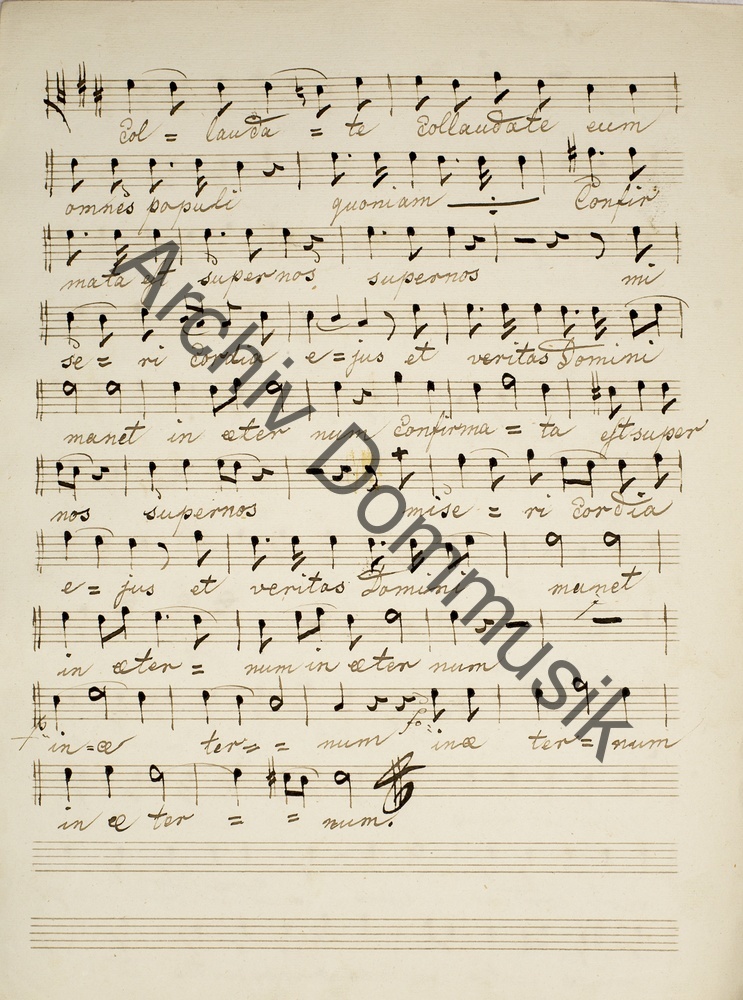 Col = lauda = te Collaudate eum
omnes populi quoniam Confir
mata est super nos, supernos mi
se = ri cordia e = jus et veritas Domini
manet in æter num Confirma = ta est super
nos supernos mise = ri cordia
e = jus et veritas Domini manet
in æter = num in æter num
in = æ ter = = num in æ ter = num
in æ ter = = num.
Archiv Dommusik